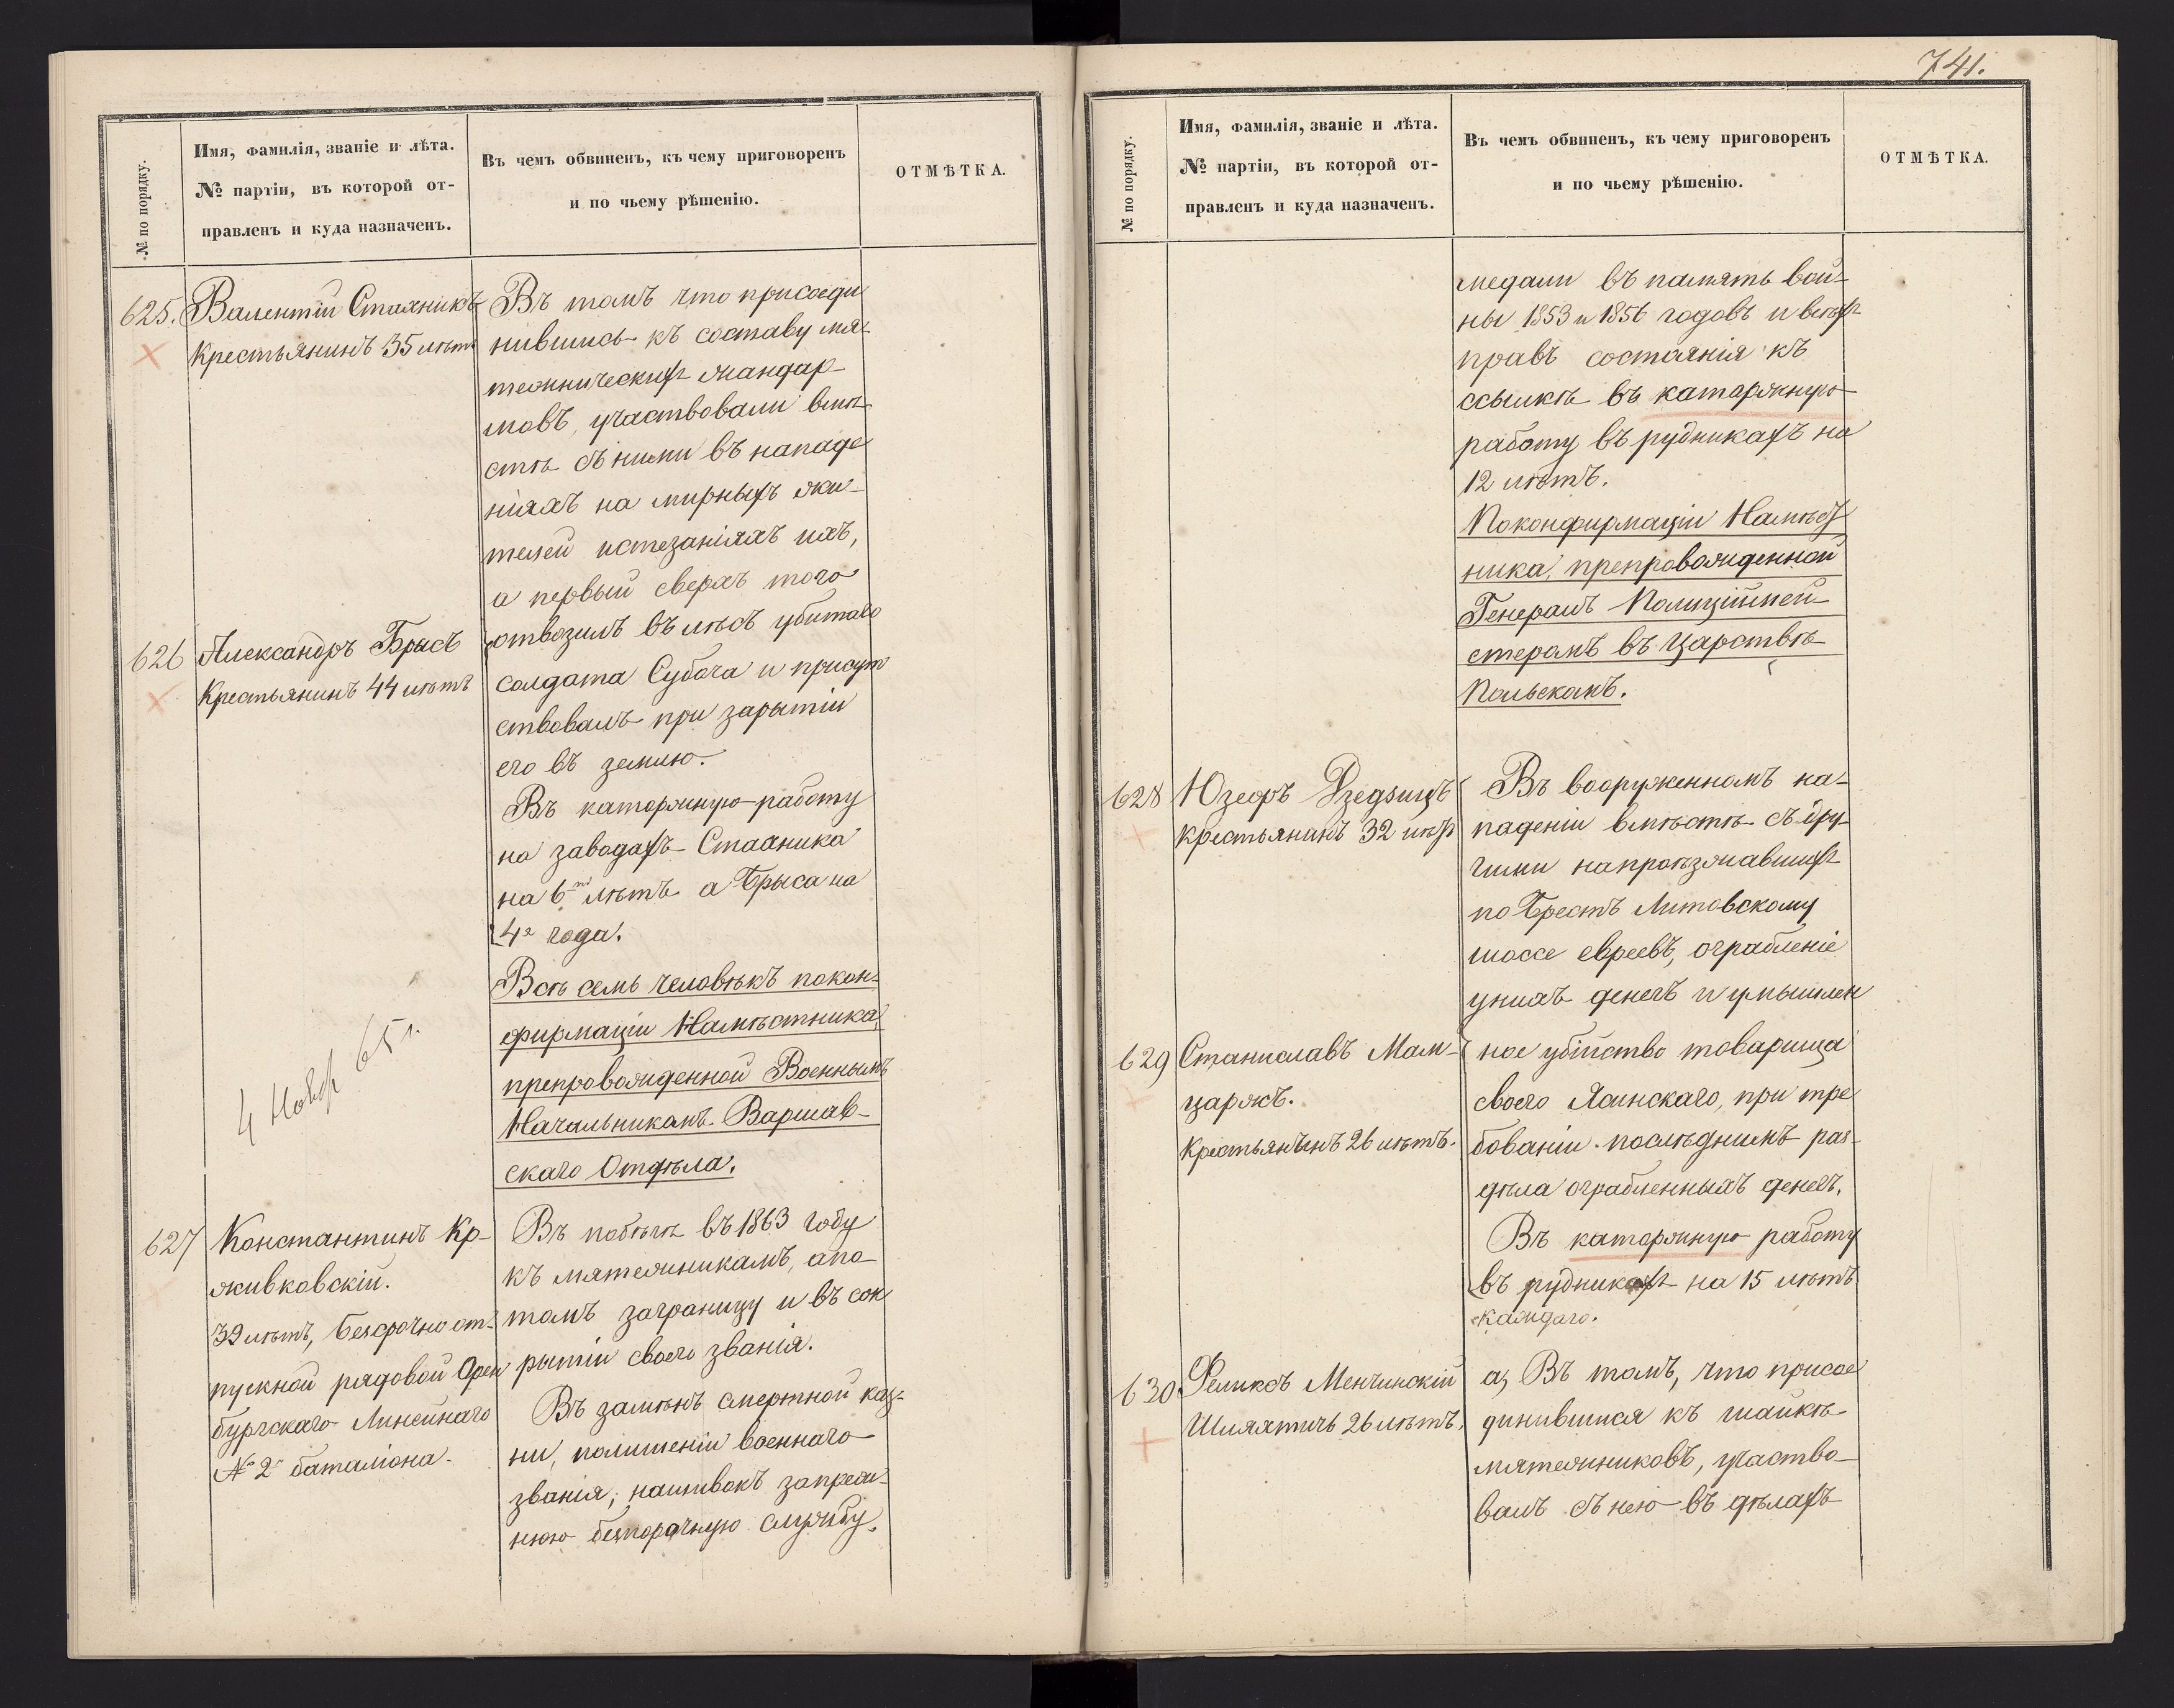 № по порядку.
Имя, фамилія, званіе и лѣта.
№ партіи, въ которой от-
правленъ и куда назначенъ.
Въ чемъ обвиненъ, къ чему приговоренъ
и по чьему рѣшенію.
ОТМѢТКА.
625. Валентій Стахникъ
Крестьянинъ 35 лѣтъ
Въ томъ что присоеди
нившись къ составу мя-
тежническихъ жандар-
мовъ, участвовали вмѣ-
стѣ съ ними въ нападе
ніяхъ на мирныхъ жи-
телей истезаніяхъ ихъ,
а первый сверхъ того
отвозилъ въ лѣсъ убитаго
солдата Субоча и присут
ствовалъ при зарытіи
его въ землю.
626 Александръ Брысъ
Крестьянинъ 44 лѣтъ
Въ каторжную работу
на заводахъ Стахника
на 6ть лѣтъ а Брыса на
4е года.
Всѣ семь человѣкъ покон-
фирмаціи Намѣстника,
препровожденной Военнымъ
Начальникомъ Варшав-
скаго Отдѣла.
4 Нояб 65 г.
627 Константинъ Кр-
живковскій.
39 лѣтъ, безсрочно от-
пускной рядовой Орен
бургскаго Линейнаго
№ 2 баталіона.
Въ побѣгѣ въ 1863 году
къ мятежникамъ, а по
томъ заграницу и въ сок
рытіи своего званія.
Въ замѣнъ смертной каз-
ни, полишеніи военнаго
званія, нашивокъ запреж-
нюю безпорочную службу,
741.
№ по порядку.
Имя, фамилія, званіе и лѣта.
№ партіи, въ которой от-
правленъ и куда назначенъ.
Въ чемъ обвиненъ, къ чему приговоренъ
и по чьему рѣшенію.
ОТМѢТКА.
медали въ память вой-
ны 1853 и 1856 годовъ и всѣхъ
правъ состоянія къ
ссылкѣ въ каторжную
работу въ рудникахъ на
12 лѣтъ.
Поконфирмаціи Намѣст
ника, препровожденной
Генералъ Полиціймей-
стеромъ въ Царствѣ
Польскомъ.
628 Юзефъ Дзедзицъ
крестьянинъ 32 лѣтъ
Въ вооруженномъ на-
паденіи вмѣстѣ съ дру-
гими напроѣзжавшихъ
по Брестъ Литовскому
шоссе евреевъ, ограбленіе
унихъ денегъ и умышлен
629 Станиславъ Мам-
царжъ.
Крестьянинъ 26 лѣтъ.
ное убійство товарища
своего Ясинскаго, при тре
бованіи послѣднимъ раз-
дѣла ограбленныхъ денегъ.
Въ каторжную работу
въ рудникахъ на 15 лѣтъ
каждаго.
630 Феликсъ Менчинскій
Шляхтичъ 26 лѣтъ.
а, Въ томъ, что присое
динившися къ шайкѣ
мятежниковъ, участво-
валъ съ нею въ дѣлахъ